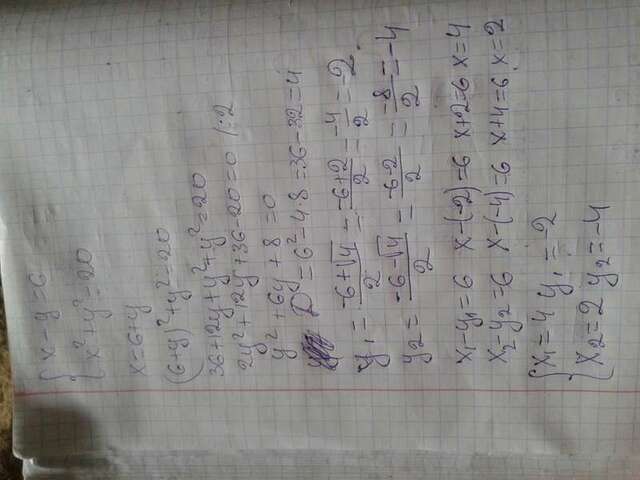 { x - y = 6
{ x² + y² = 20
x = 6 + y
(6 + y)² + y² = 20
36 + 12y + y² + y² = 20
2y² + 12y + 36 - 20 = 0 | : 2
y² + 6y + 8 = 0
D = 6² - 4 · 8 = 36 - 32 = 4
y₁ = (-6 + √4)/2 = (-6 + 2)/2 = -4/2 = -2
y₂ = (-6 - √4)/2 = (-6 - 2)/2 = -8/2 = -4
x₁ - y₁ = 6 x - (-2) = 6 x + 2 = 6 x = 4
x₂ - y₂ = 6 x - (-4) = 6 x + 4 = 6 x = 2
{ x₁ = 4 y₁ = -2
{ x₂ = 2 y₂ = -4